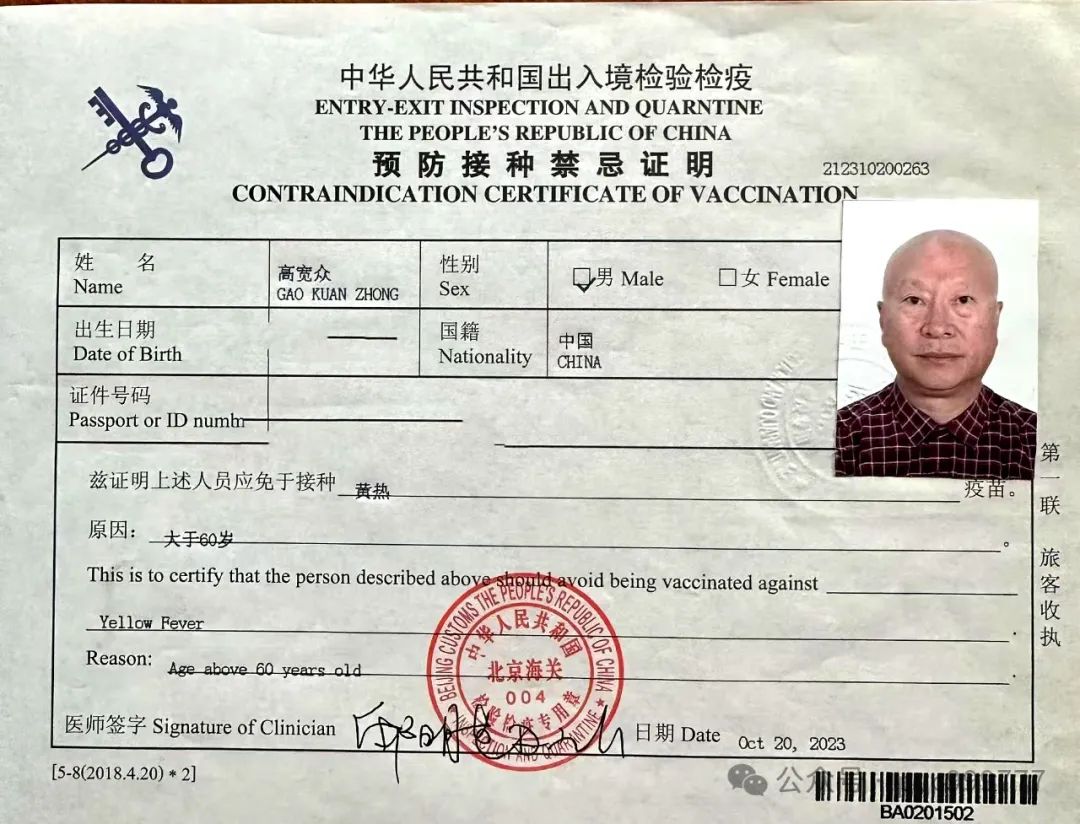 中华人民共和国出入境检验检疫
ENTRY-EXIT INSPECTION AND QUARNTINE
THE PEOPLE'S REPUBLIC OF CHINA
预防接种禁忌证明
212310200263
CONTRAINDICATION CERTIFICATE OF VACCINATION
姓 名
Name
高宽众
GAO KUAN ZHONG
性别
Sex
男 Male
女 Female
出生日期
Date of Birth
国籍
Nationality
中国
CHINA
证件号码
Passport or ID numb
兹证明上述人员应免于接种 黄热 疫苗。
原因： 大于60岁 。
This is to certify that the person described above should avoid being vaccinated against
Yellow Fever .
Reason: Age above 60 years old .
BEIJING CUSTOMS THE PEOPLE'S REPUBLIC OF CHINA
中华人民共和国
北京海关
004
检验检疫专用章
INSPECTION AND QUARANTINE
医师签字 Signature of Clinician
日期 Date Oct 20, 2023
第一联 旅客收执
[5-8(2018.4.20)*2]
公众号
BA0201502